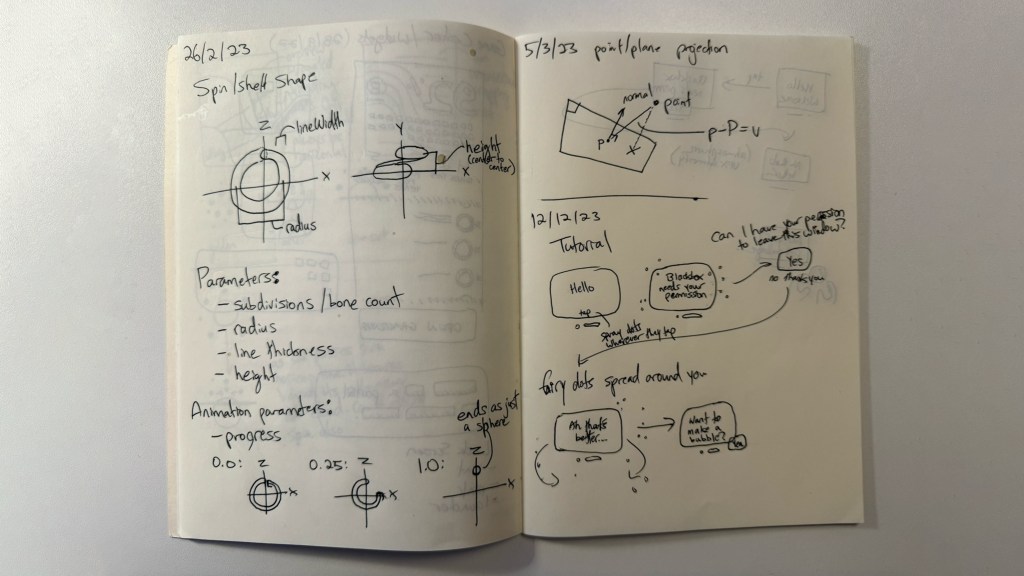 26/2/23
Spin/shell shape
Z
lineWidth
X
radius
Y
height
(center to
center)
X
Parameters:
- subdivisions / bone count
- radius
- line thickness
- height
Animation parameters:
- progress
ends as just
a sphere
0.0: Z
X
0.25: Z
X
1.0: Z
X
5/3/23 point/plane projection
normal
point
P
p-P=v
12/12/23
Tutorial
Hello
tap
spray dots
wherever they tap
needs your
permission
Can I have your permission
to leave this window?
Yes
no thank you
fairy dots spread around you
Ah that's
better...
Want to
make a
bubble?